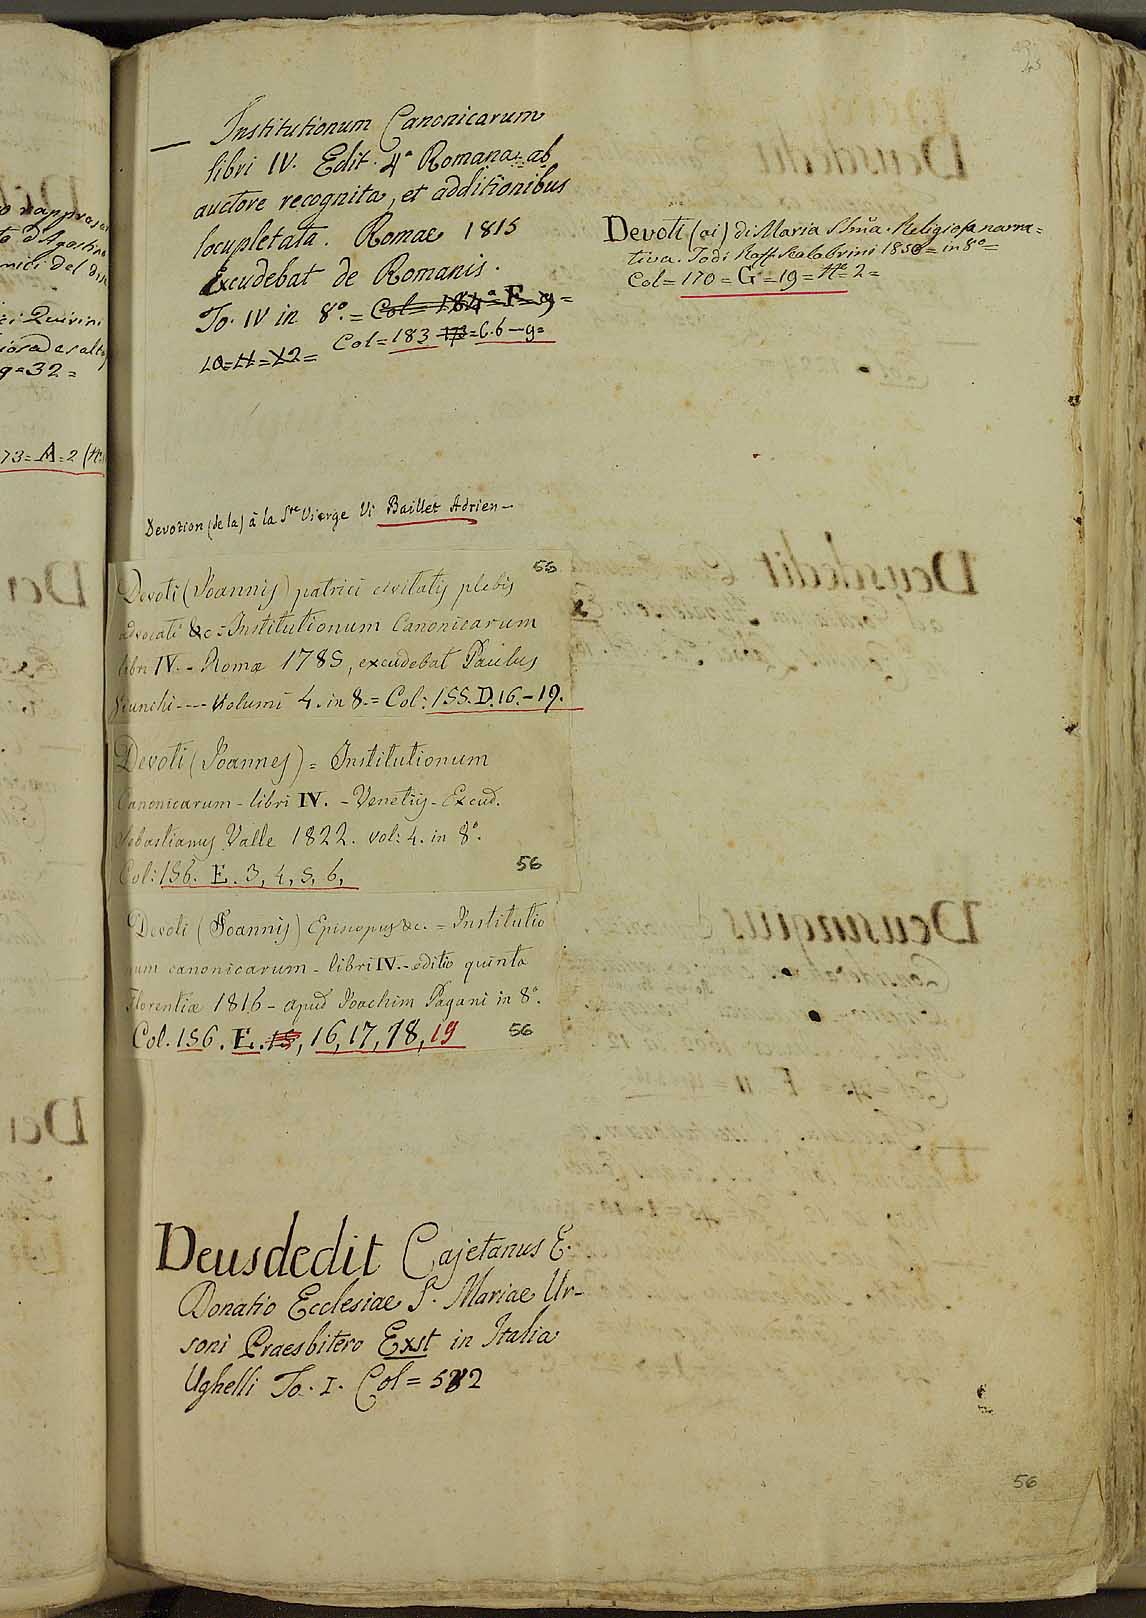 — Institutionum Canonicarum
libri IV. Edit. 4ª Romana ab
auctore recognita, et additionibus
locupletata. Romae 1815
Excudebat de Romanis.
To. IV in 8º. = Col = 184 = F = 9 =
10 = 11 = 12 =
Col = 183 = 6.6 — 9 =
Devoti (ai) di Maria Sṡma. Religiosa narra=
tiva. Todi Raff. Scalabrini 1850 = in 8º =
Col = 170 = G = 19 = tt° = 2 =
Devotion (de la) à la Ste Vierge Vi Baillet Adrien —
56
Devoti (Joannis) patrici civitatis plebis
advocati &c = Institutionum Canonicarum
libri IV. - Romæ 1785, excudebat Paulus
Giunchi --- Volumi 4. in 8. = Col: 155. D. 16. - 19.
Devoti (Joannes) = Institutionum
Canonicarum - libri IV. - Venetiis - Excud.
Sebastianus Valle 1822. vol: 4. in 8º.
Col: 156. E. 3, 4, 5, 6,
56
Devoti (Joannis) Episcopus &c. = Institutio
num canonicarum - libri IV. - editio quinta
Florentiæ 1816 - apud Joachim Pagani in 8º.
Col. 156. E. 15, 16, 17, 18, 19
56
Deusdedit Cajetanus E.
Donatio Ecclesiae S. Mariae Ur-
soni Praesbitero Exst in Italia
Ughelli To. I. Col =
56